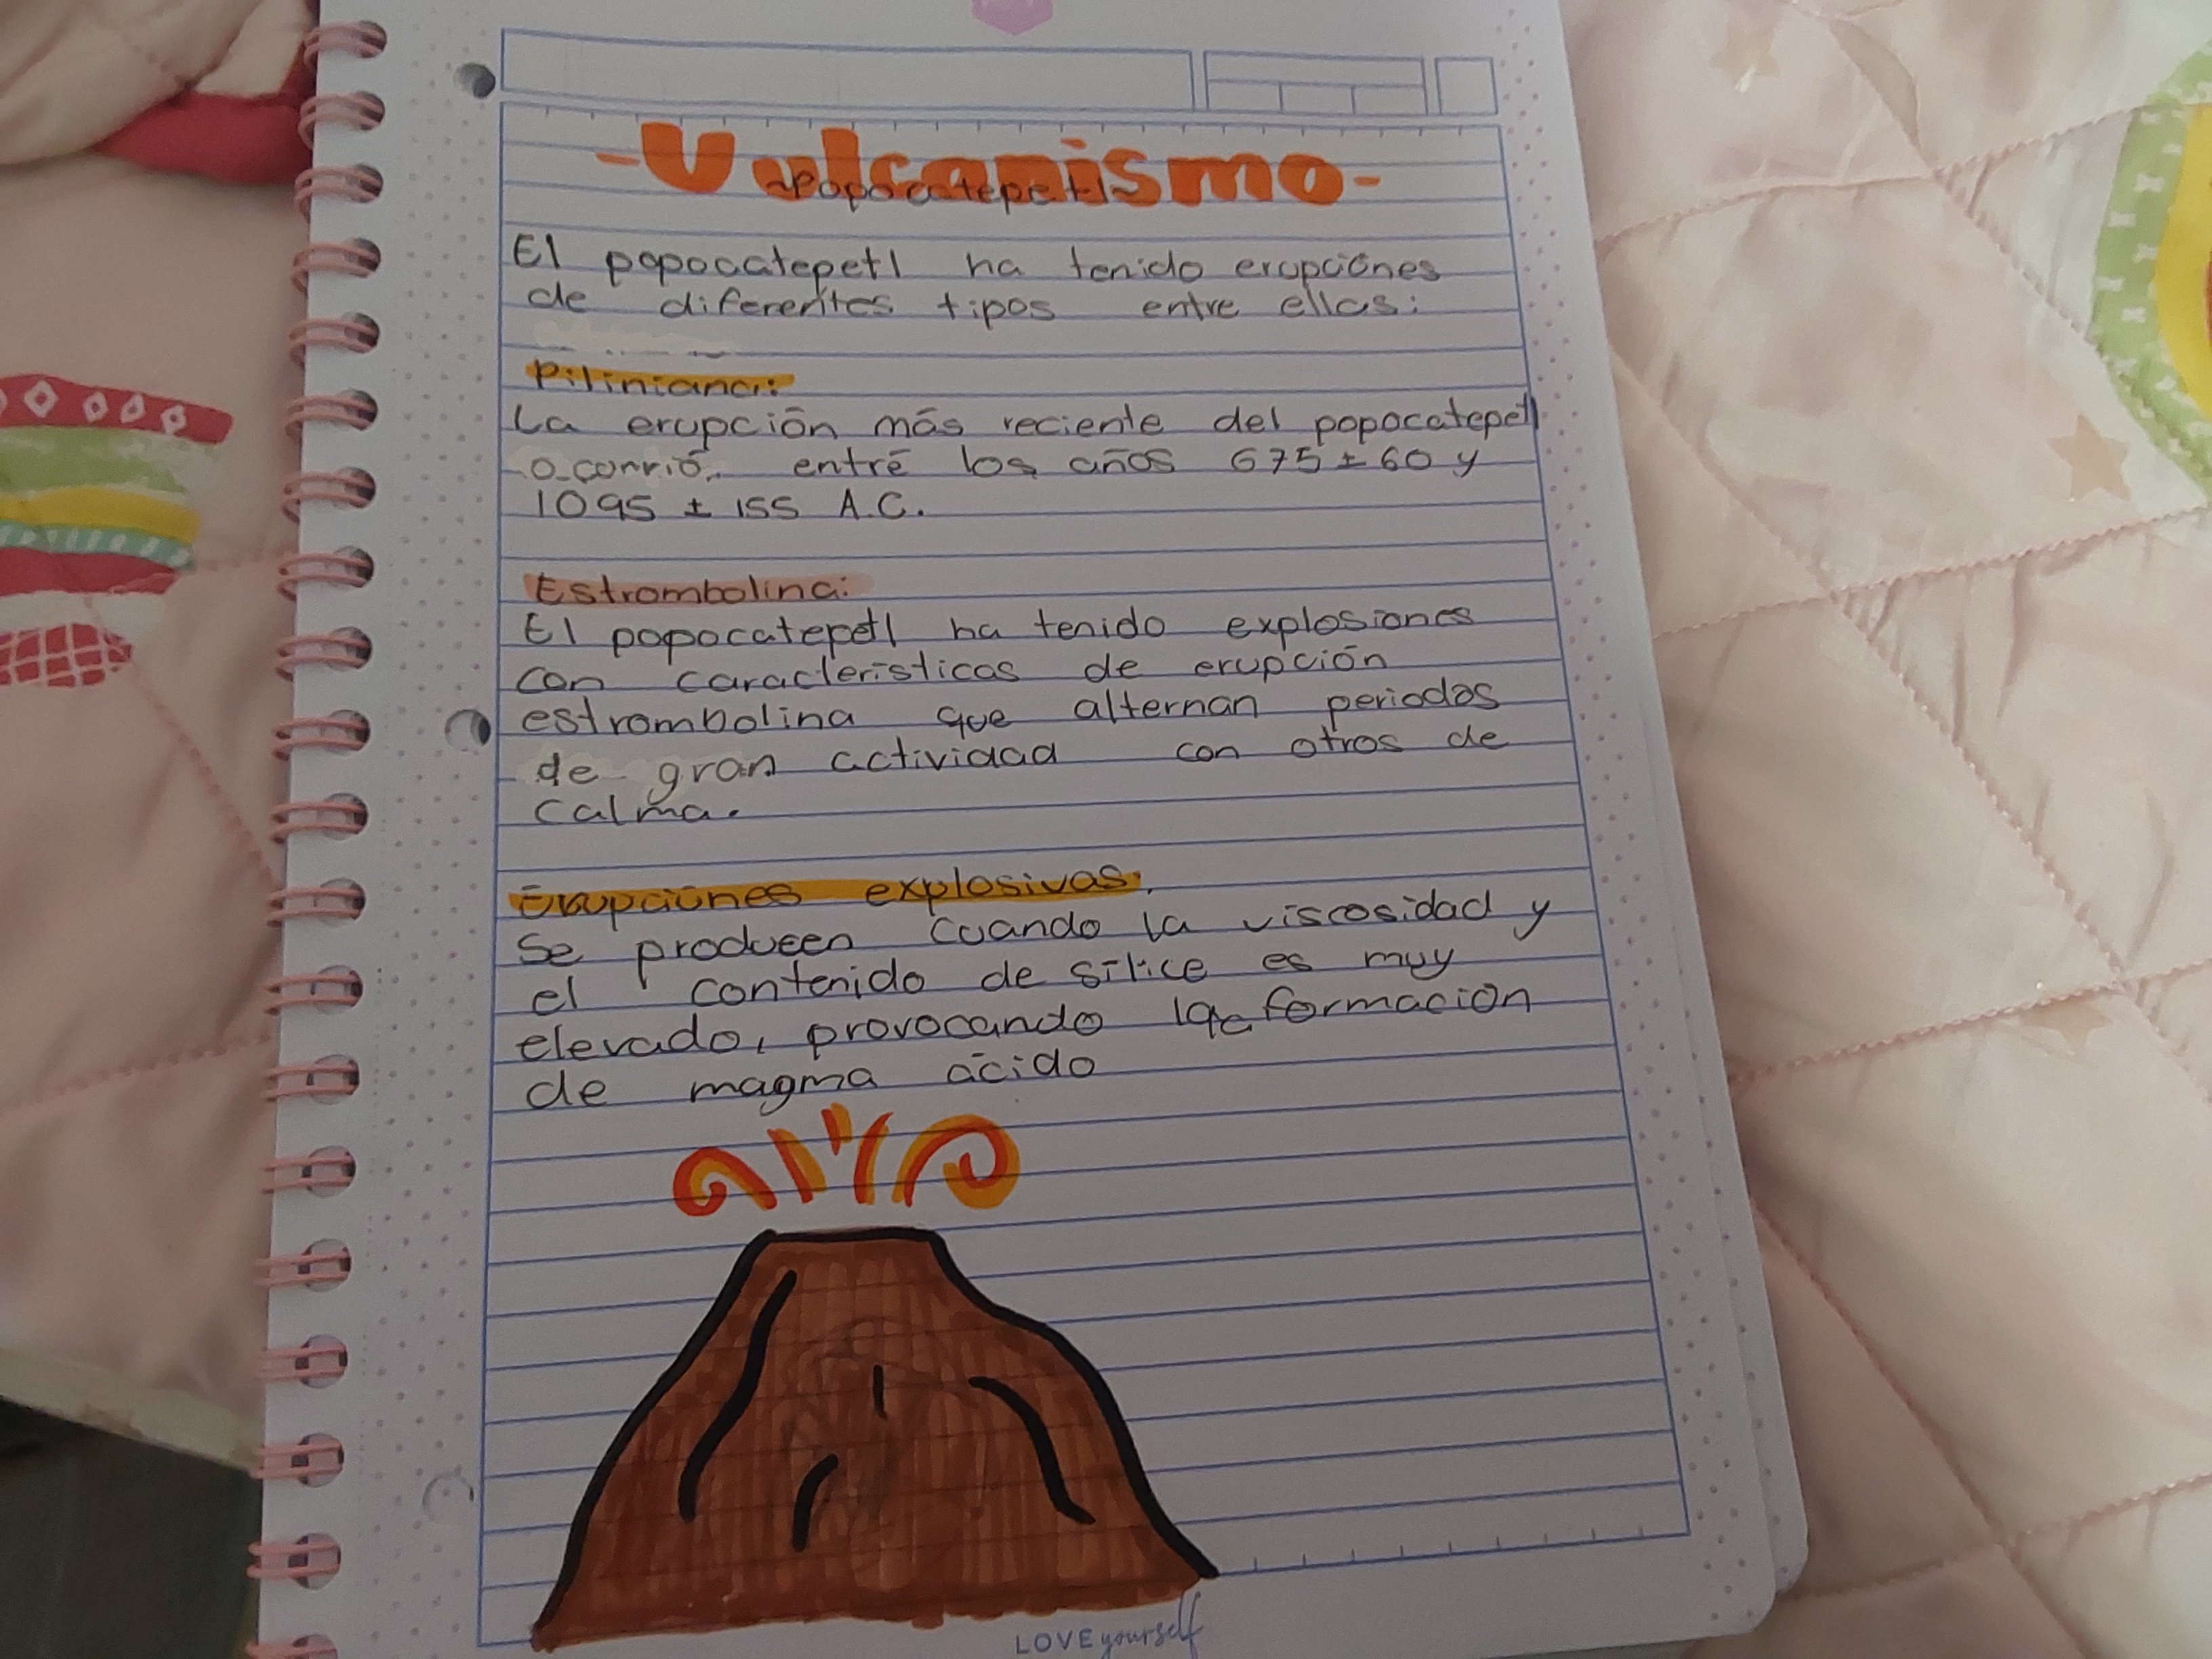 -Vulcanismo-
~Popocatepetl~
El popocatepetl ha tenido erupciones
de diferentes tipos entre ellas:
Piliniana:
La erupción más reciente del popocatepetl
ocorrió entre los años 675 ± 60 y
1095 ± 155 A.C.
Estrombolina:
El popocatepetl ha tenido explosiones
con características de erupción
estrombolina que alternan periodos
de gran actividad con otros de
calma.
Erupciones explosivas.
Se producen cuando la viscosidad y
el contenido de sílice es muy
elevado, provocando la formación
de magma ácido
LOVE yourself